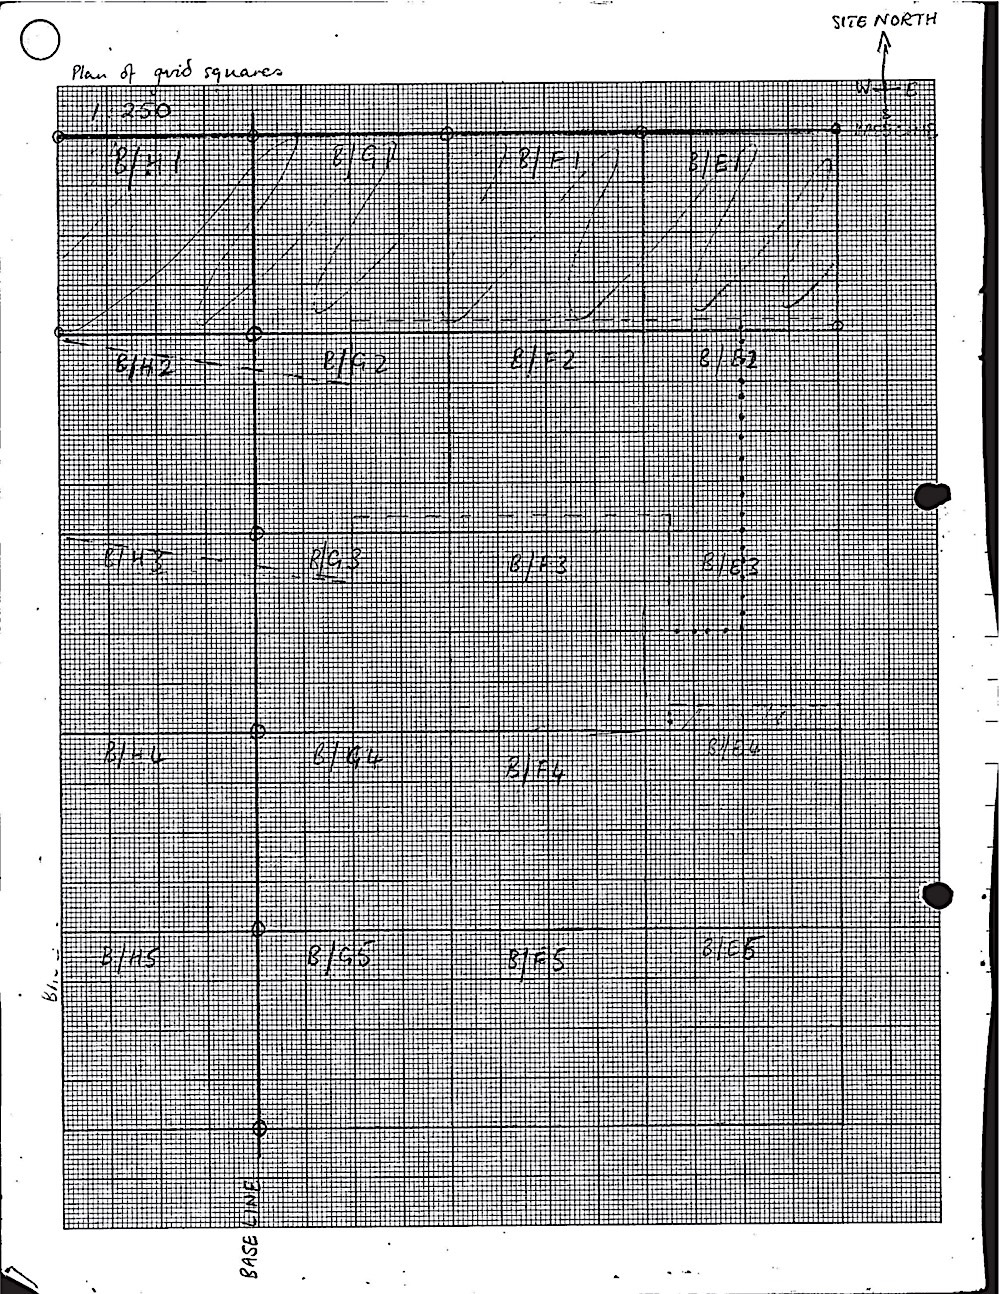 SITE NORTH
Plan of grid squares
W E
S
1:250
B/H1 B/G1 B/F1 B/E1
B/H2 B/G2 B/F2 B/E2
B/H3 B/G3 B/F3 B/E3
B/H4 B/G4 B/F4 B/E4
B/H5 B/G5 B/F5 B/E5
BASE LINE